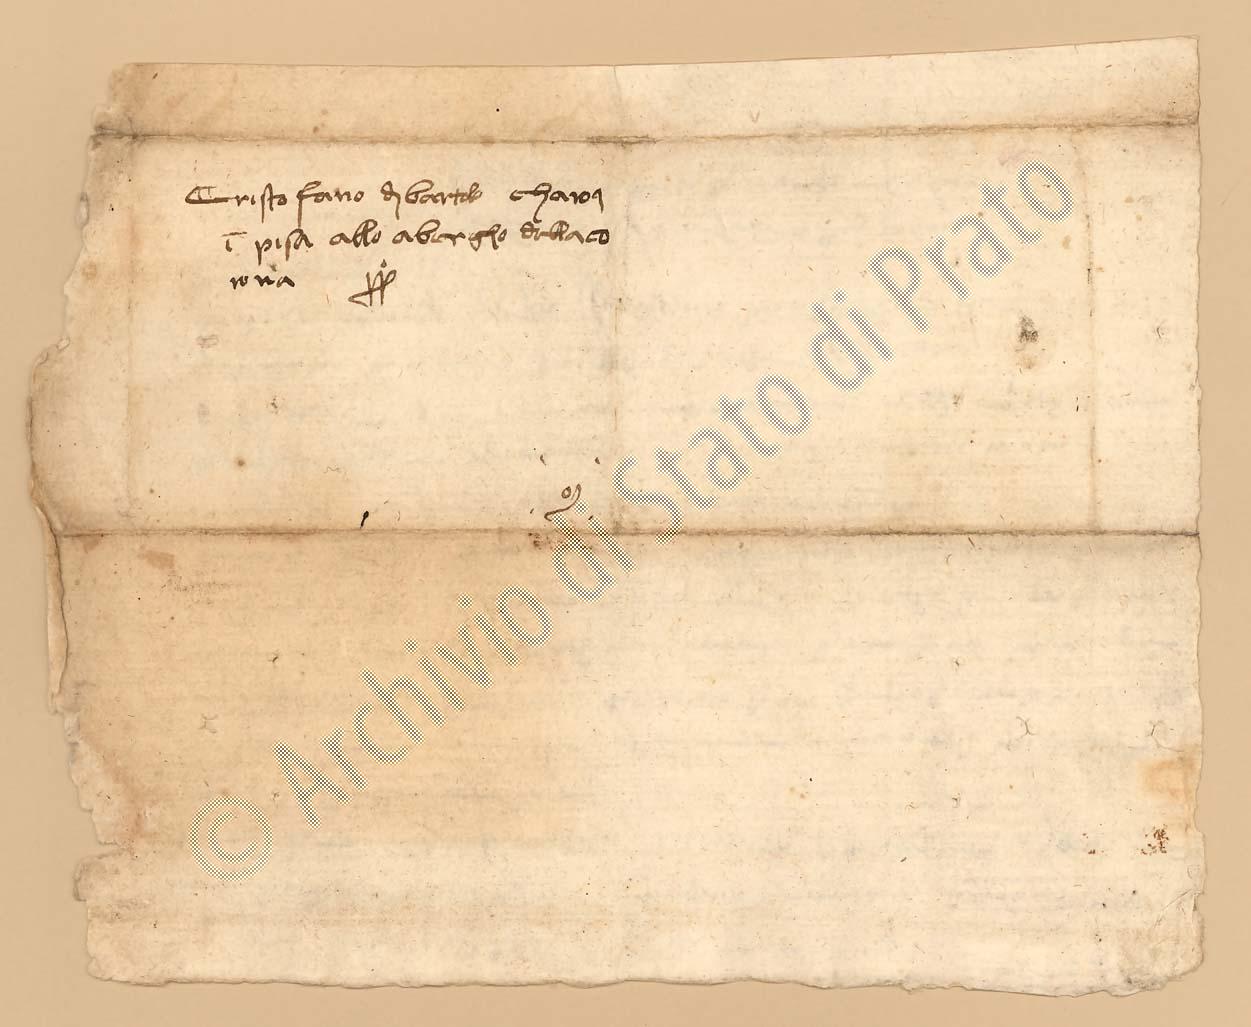 Cristofano di bartolo charoci
in pisa allo abergho dellaco
rona ppo
© Archivio di Stato di Prato